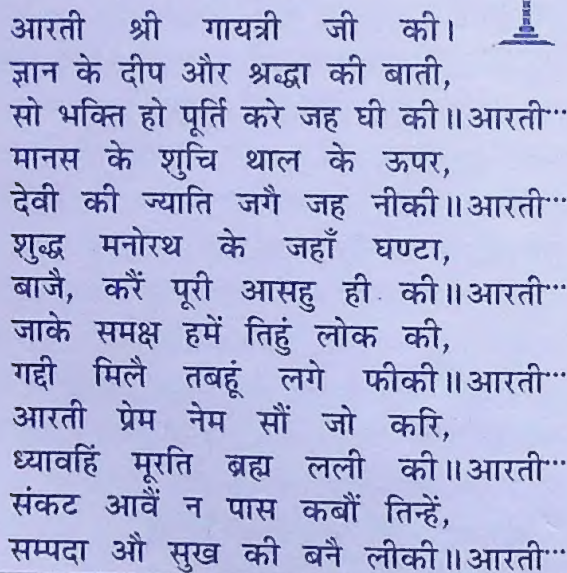 आरती श्री गायत्री जी की।
ज्ञान के दीप और श्रद्धा की बाती,
सो भक्ति हो पूर्ति करे जह घी की॥आरती…
मानस के शुचि थाल के ऊपर,
देवी की ज्याति जगै जह नीकी॥आरती…
शुद्ध मनोरथ के जहाँ घण्टा,
बाजै, करैं पूरी आसहु ही की॥आरती…
जाके समक्ष हमें तिहुं लोक की,
गद्दी मिलै तबहूं लगे फीकी॥आरती…
आरती प्रेम नेम सौं जो करि,
ध्यावहिं मूरति ब्रह्म लली की॥आरती…
संकट आवैं न पास कबौं तिन्हें,
सम्पदा औ सुख की बनै लीकी॥आरती…